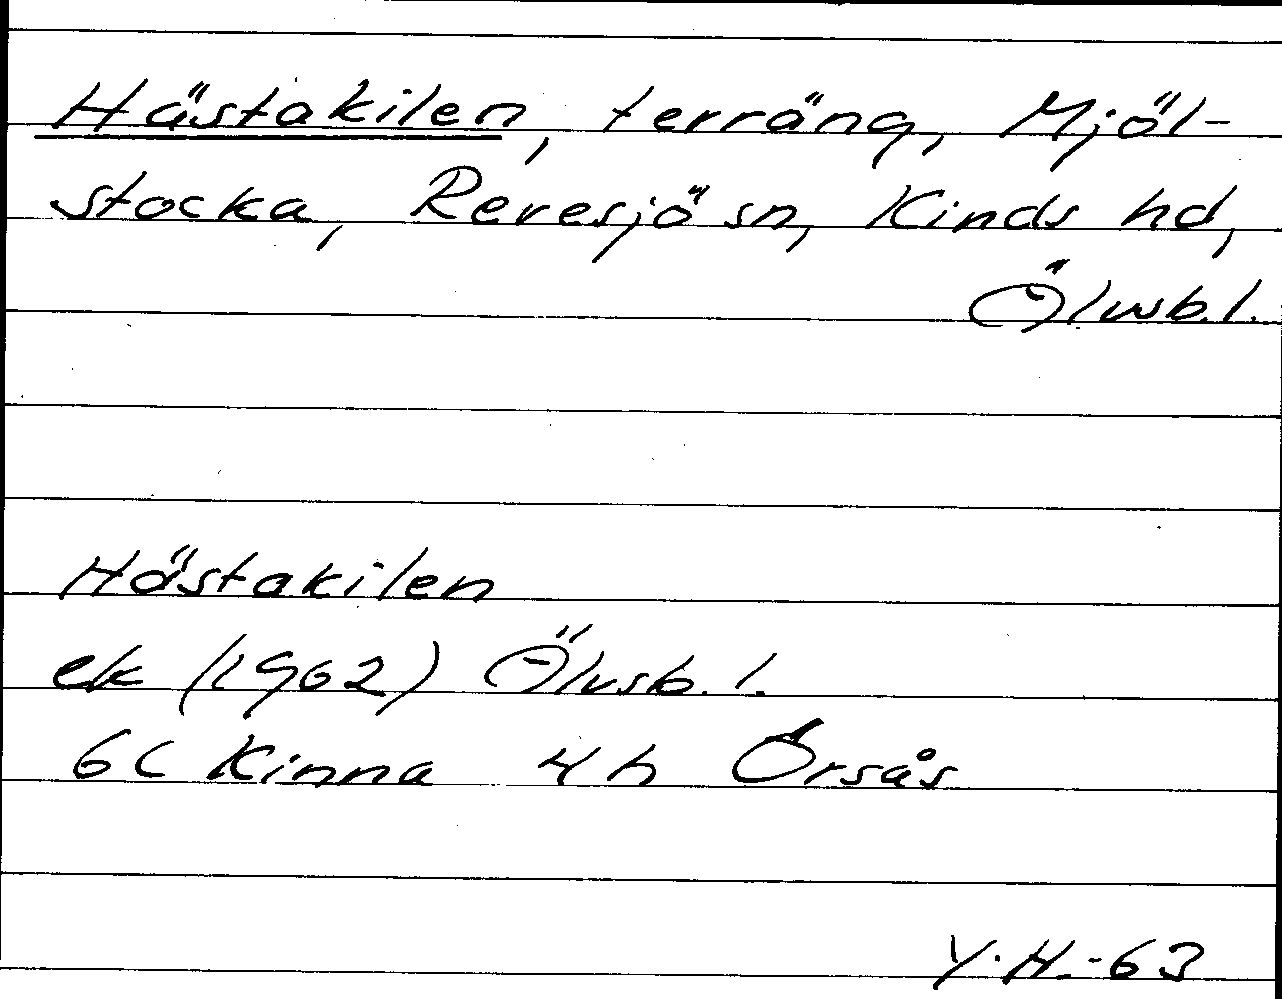 Hästakilen, terräng, Mjöl-
stocka, Revesjö sn, Kinds hd,
Älvsb. l.
Hästakilen
ek (1962) Älvsb. l.
6C Kinna 4h Örsås
Y.H.-63